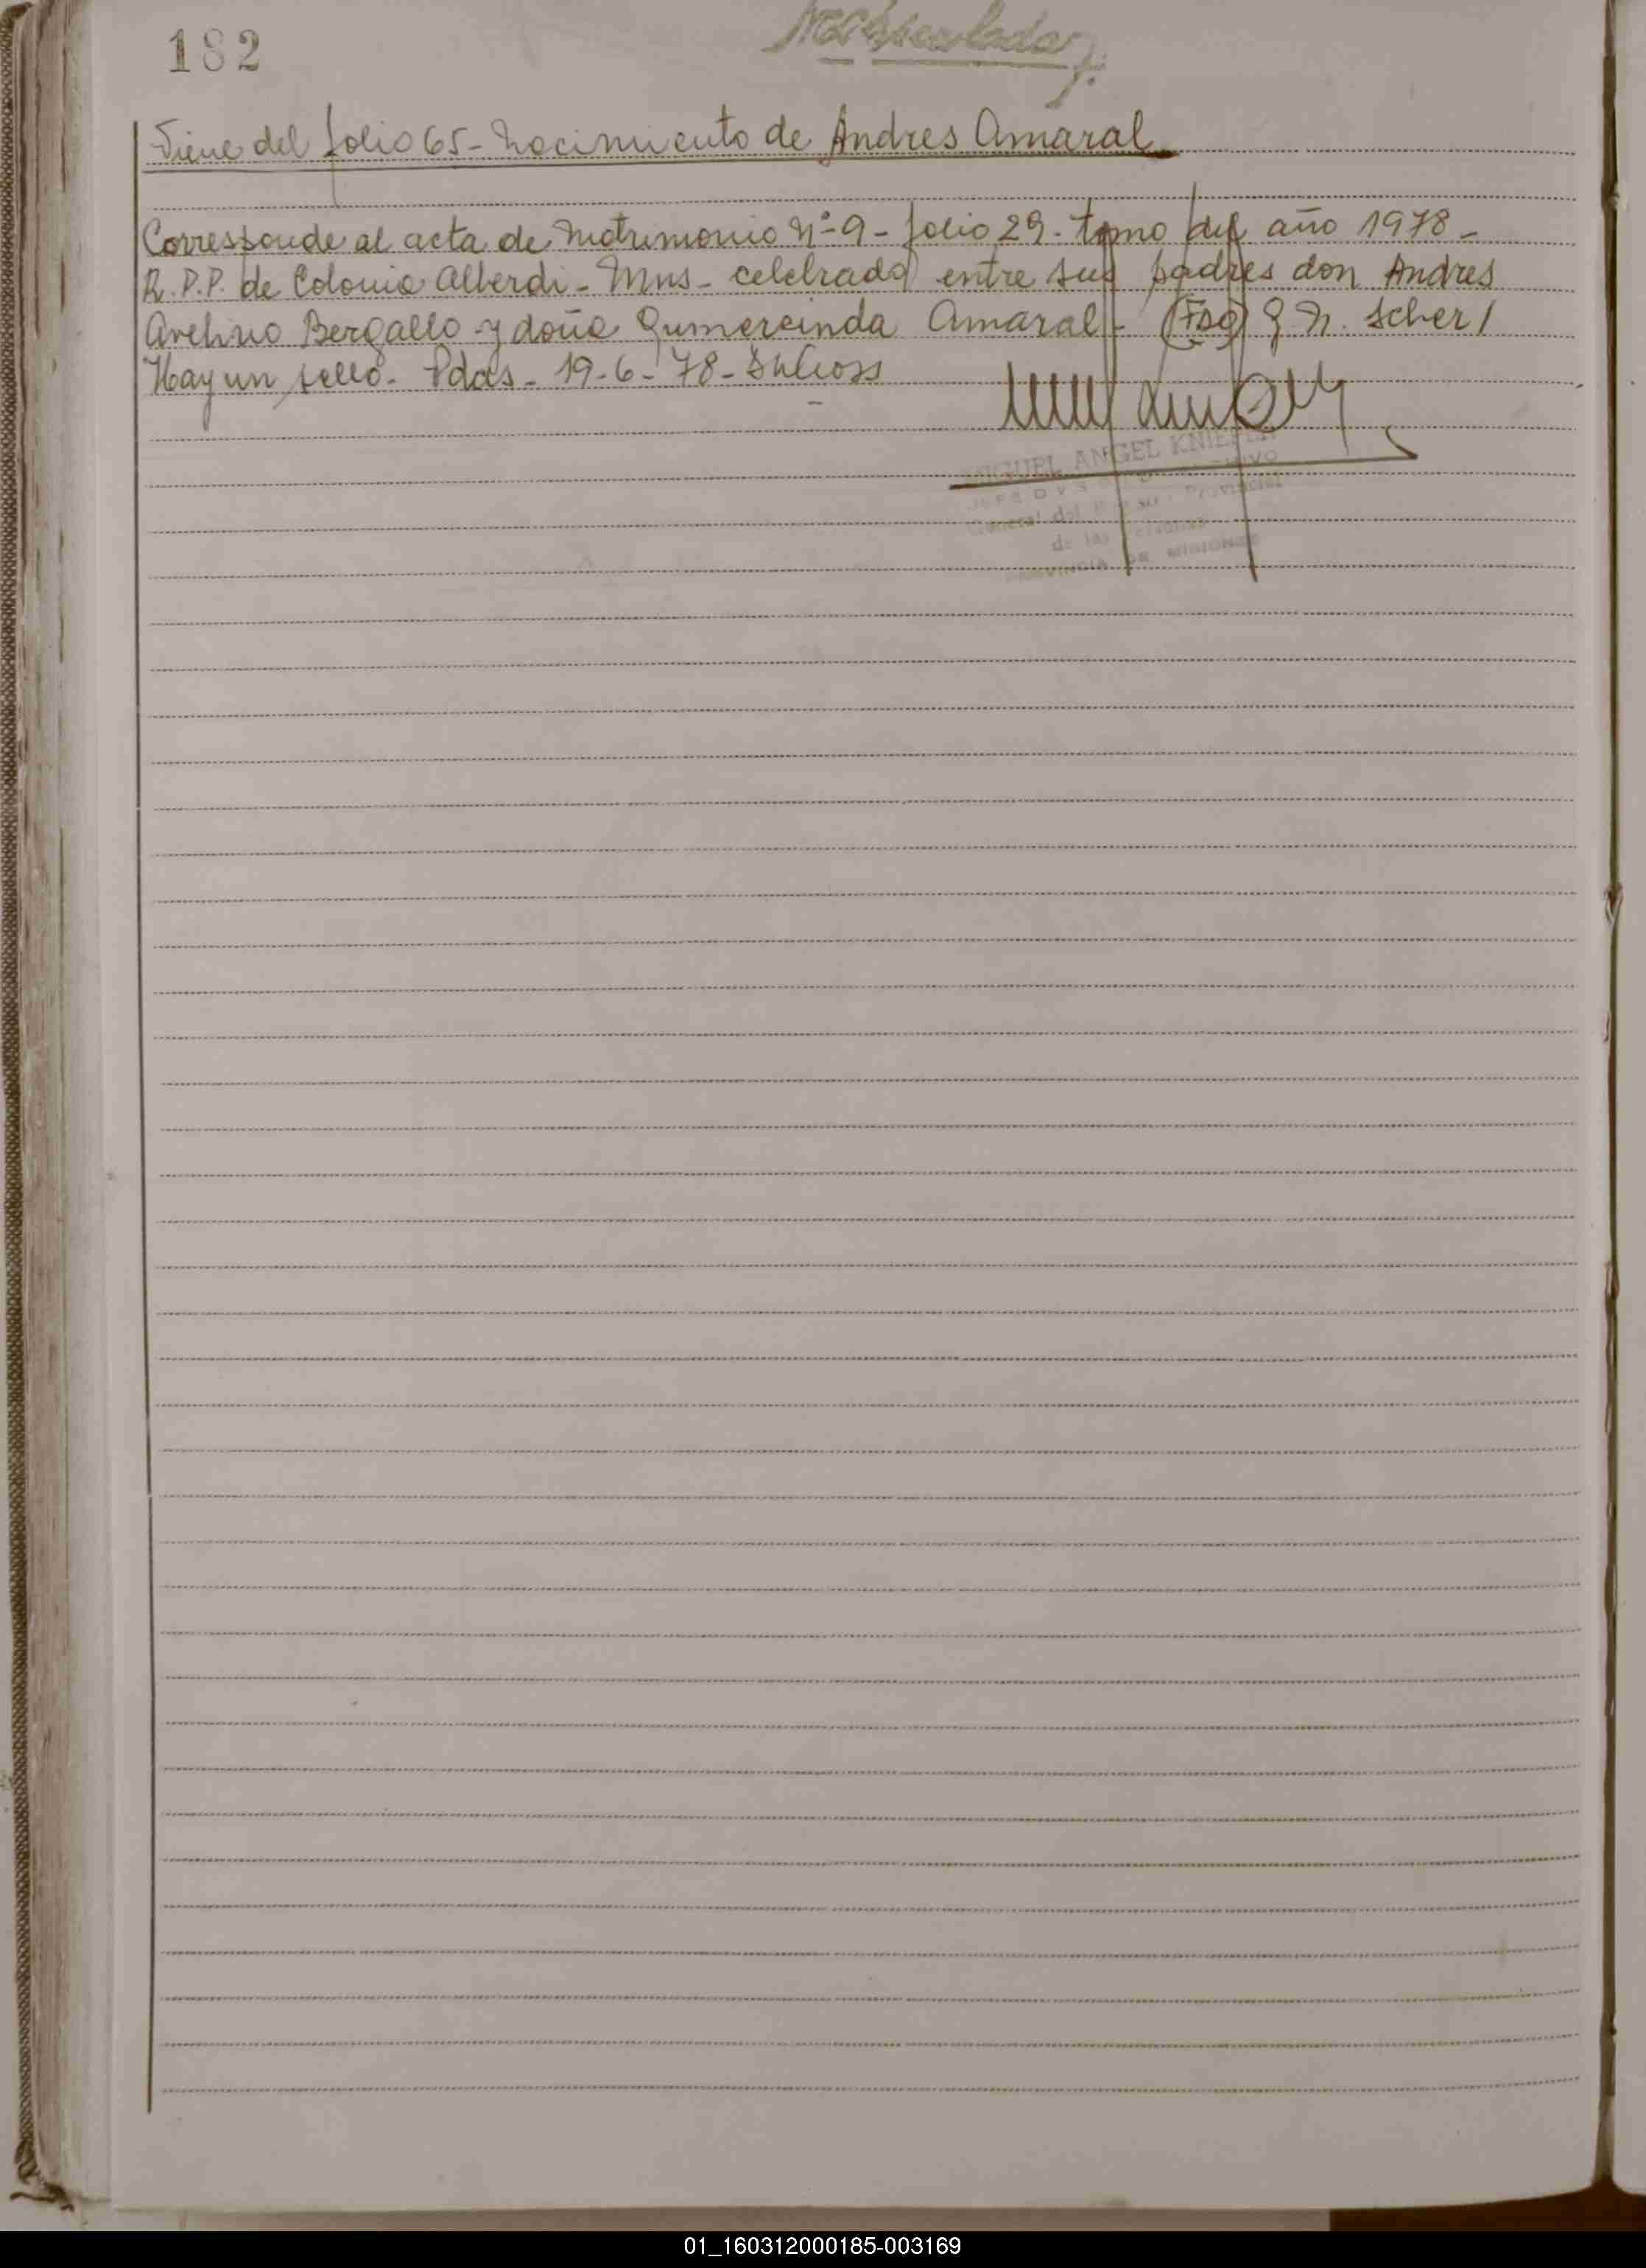 182
Viene del folio 65 - Nacimiento de Andres Amaral
Corresponde al acta de Matrimonio Nº 9 - folio 29 - tomo del año 1978 -
R.P.P. de Colonia Alberdi - Mns - celebrado entre sus padres don Andres
Avelino Bergallo y doña Gumercinda Amaral - (Fdo) J. N. Scherf
Hay un sello - Pdas - 19-6-78 -
MIGUEL ANGEL
General del Provincial
de las Personas
PROVINCIA DE MISIONES
01_160312000185-003169